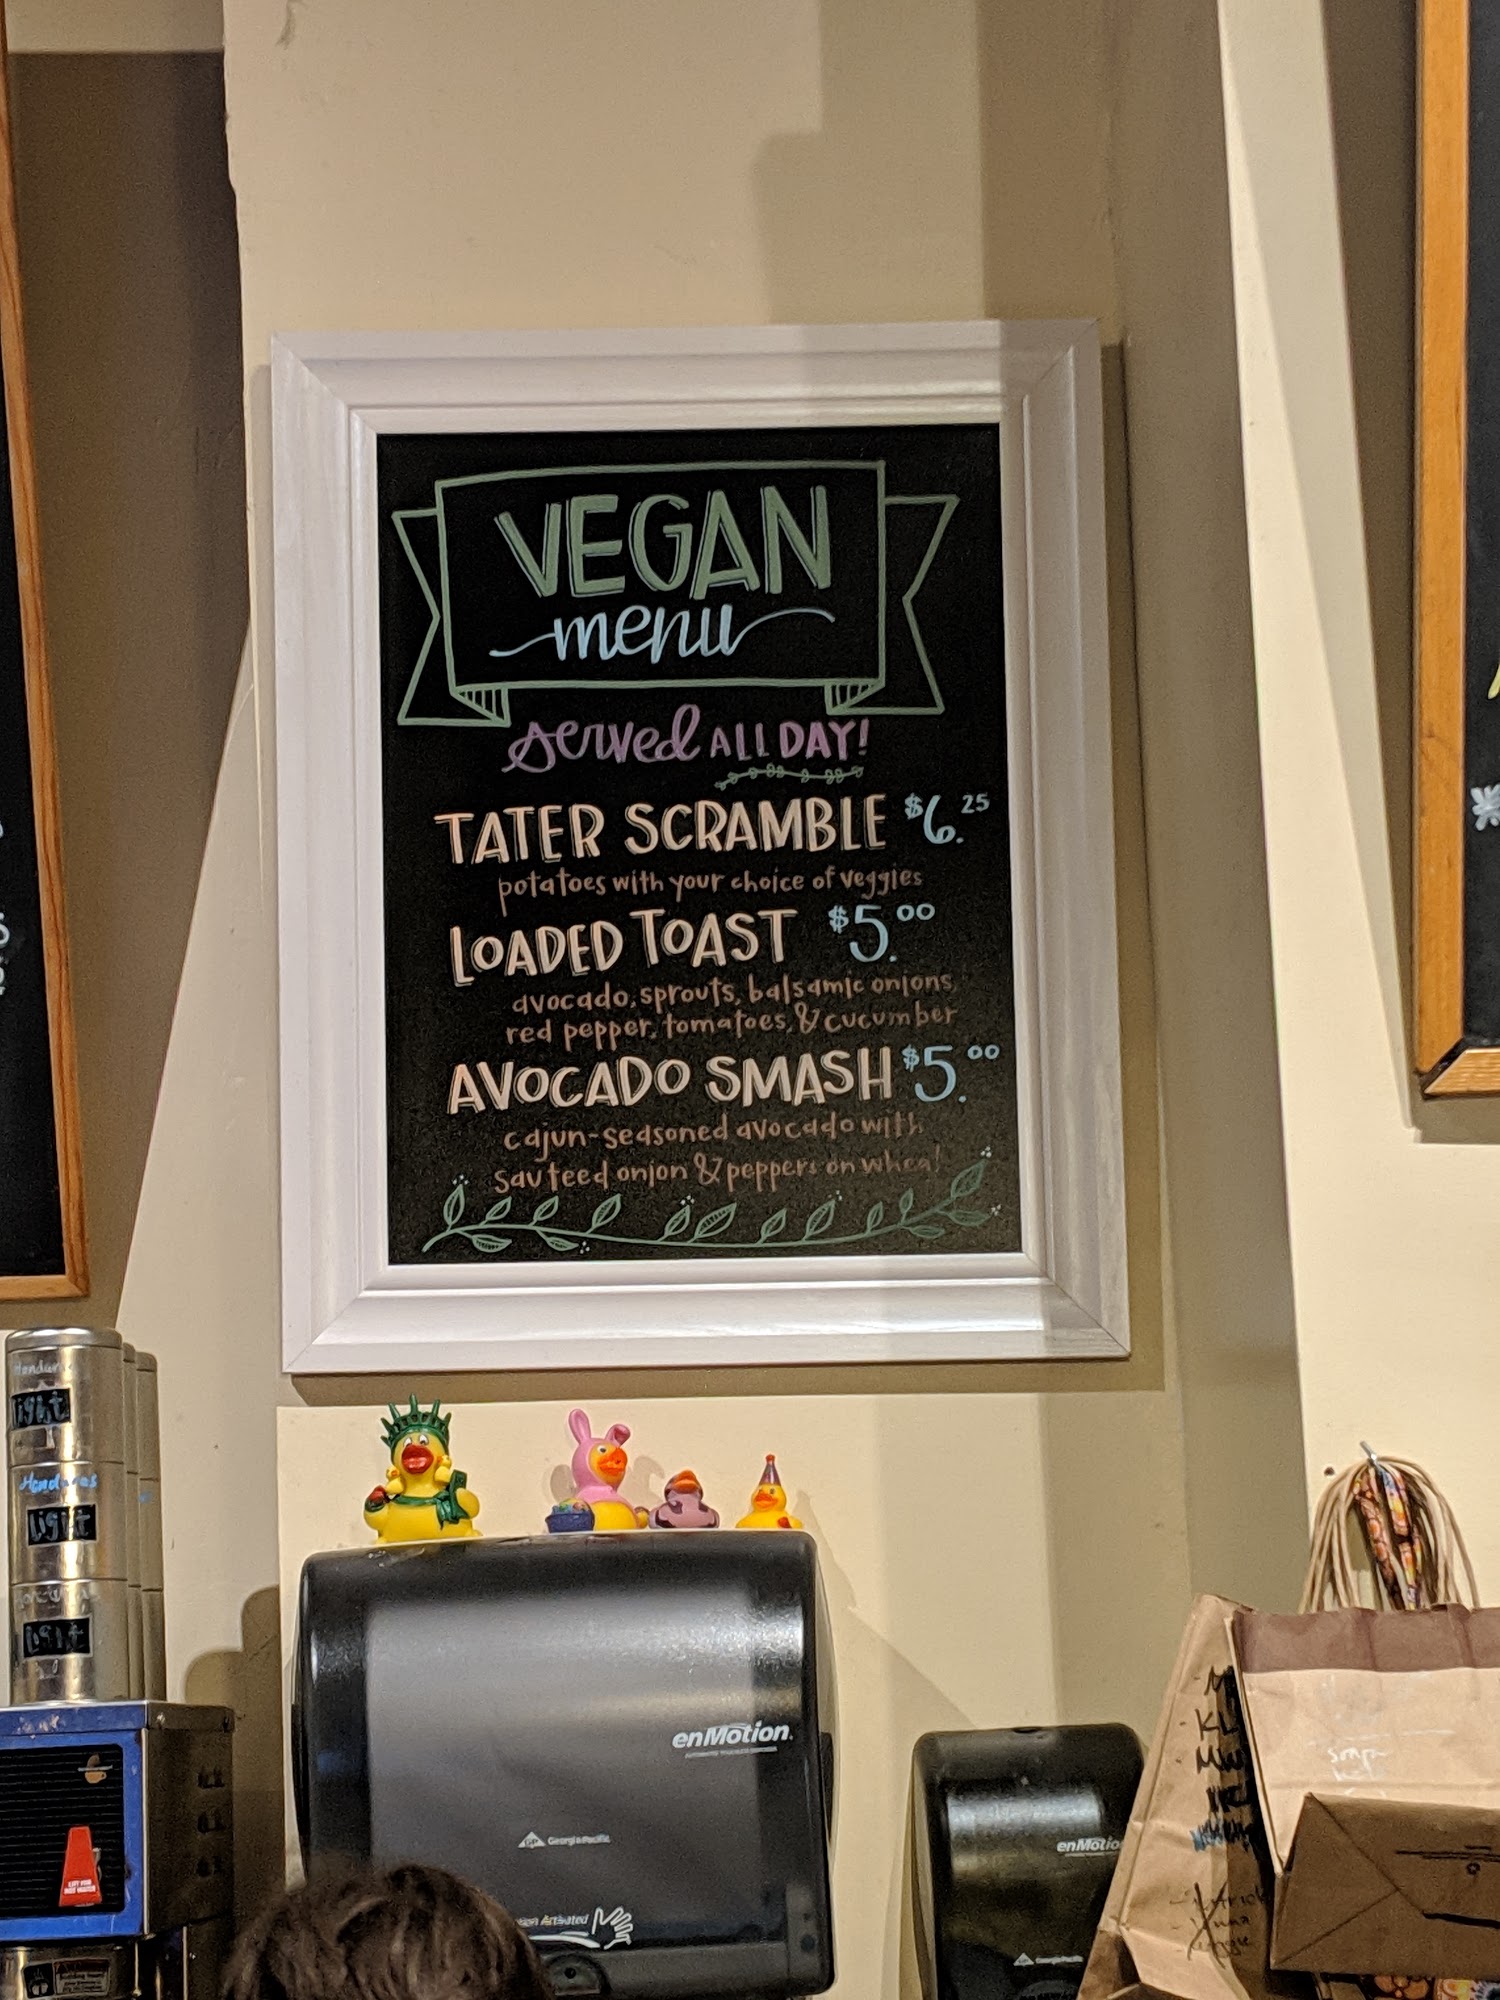 VEGAN
menu
served ALL DAY!
TATER SCRAMBLE $6.25
potatoes with your choice of veggies
LOADED TOAST $5.00
avocado, sprouts, balsamic onions,
red pepper, tomatoes, & cucumber
AVOCADO SMASH $5.00
cajun-seasoned avocado with
sauteed onion & peppers on wheat
light
Honduras
light
light
enMotion
Georgia-Pacific
Activated
enMotio
Georgia-Pacific